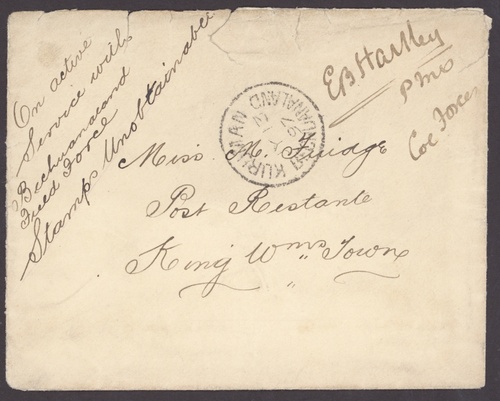 On active
Service with
Bechuanaland
Field Force
Stamps Unobtainable
EB Hartley
PMO
Col Forces
KURUMAN
BECHUANALAND
97
Miss M.
Post Restante
King Wms Town